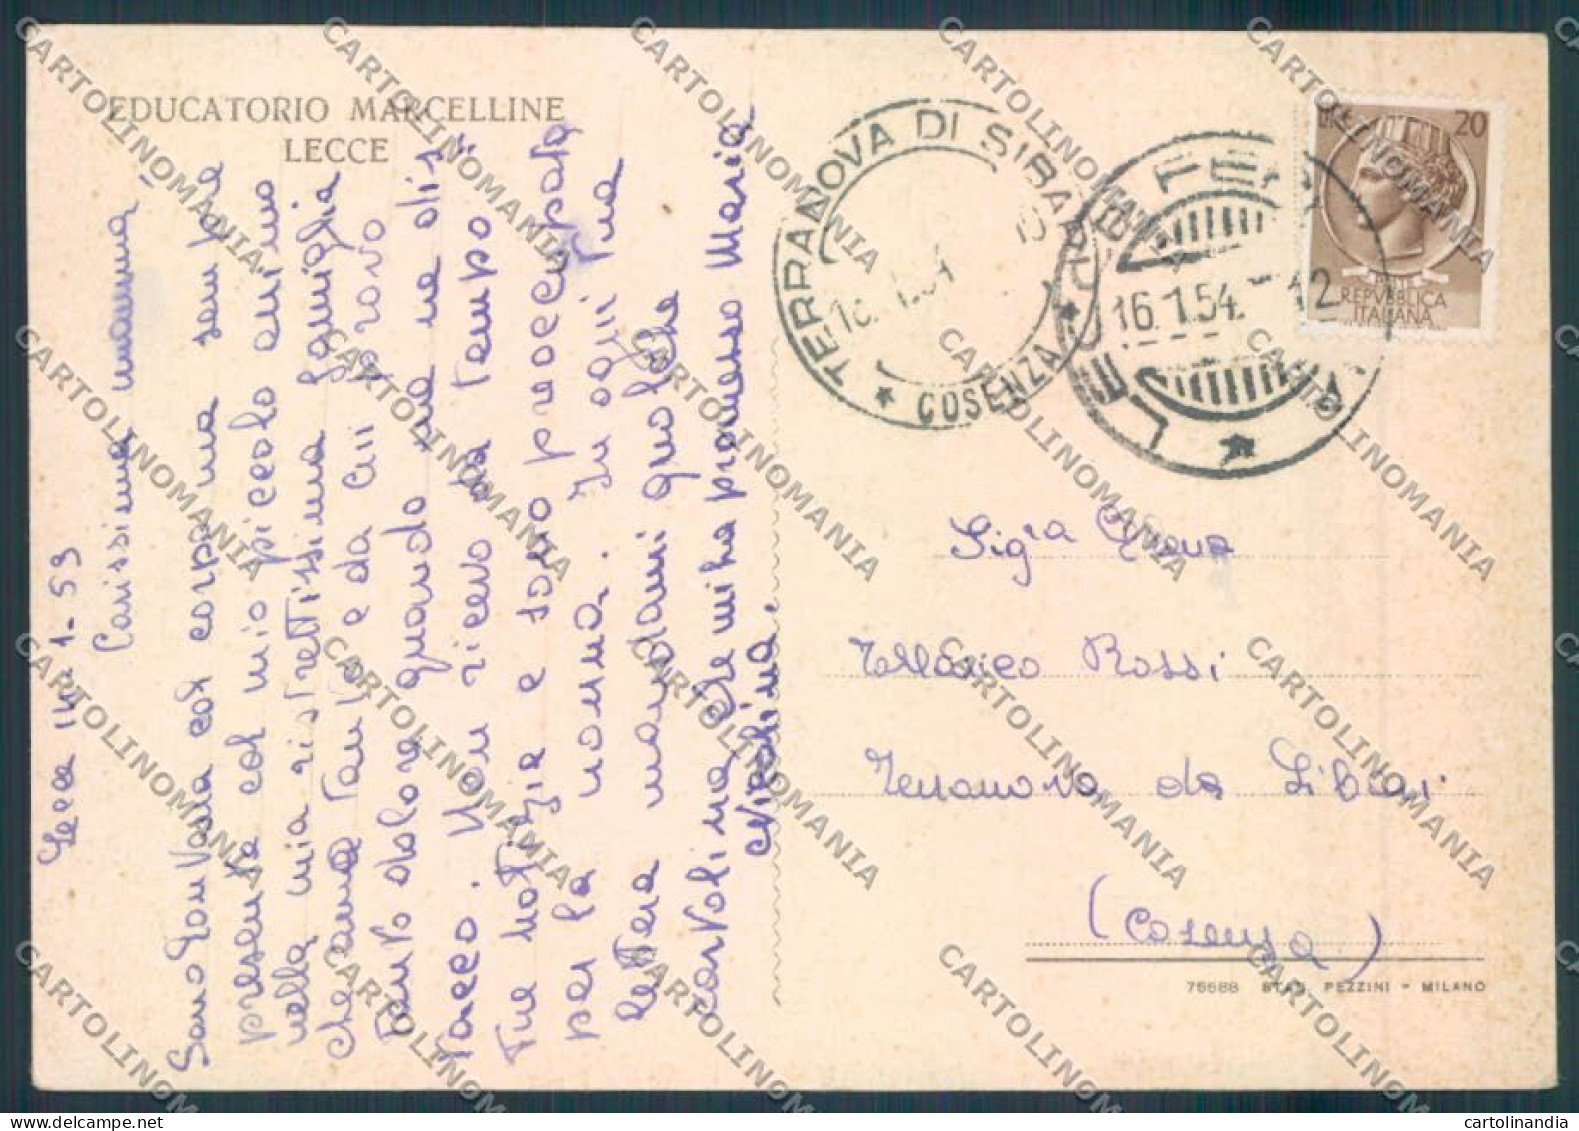 EDUCATORIO MARCELLINE
LECCE
Lecce 14-1-53
Carissima mamma -
Sono lontana col corpo ma sempre
presente col mio piccolo animo
nella mia ristrettissima famiglia
che amo tanto e da cui provo
tanto dolore quando me ne dis=
tacco. Non ricevo da tempo
tue notizie e sono preoccupata
per la nonna. In ogni tua
lettera mandami qualche
cartolina che mi hai promesso Maria
Nicolina.
TERRANOVA DI SIBARI
16.1.54
* COSENZA *
LECCE
16.1.54.-12
20
REPVBBLICA
ITALIANA
Sig.ra
Tallarico Rossi
Terranova da Sibari
(Cosenza)
75688 STAB. PEZZINI - MILANO
CARTOLINOMANIA
cartolinandia